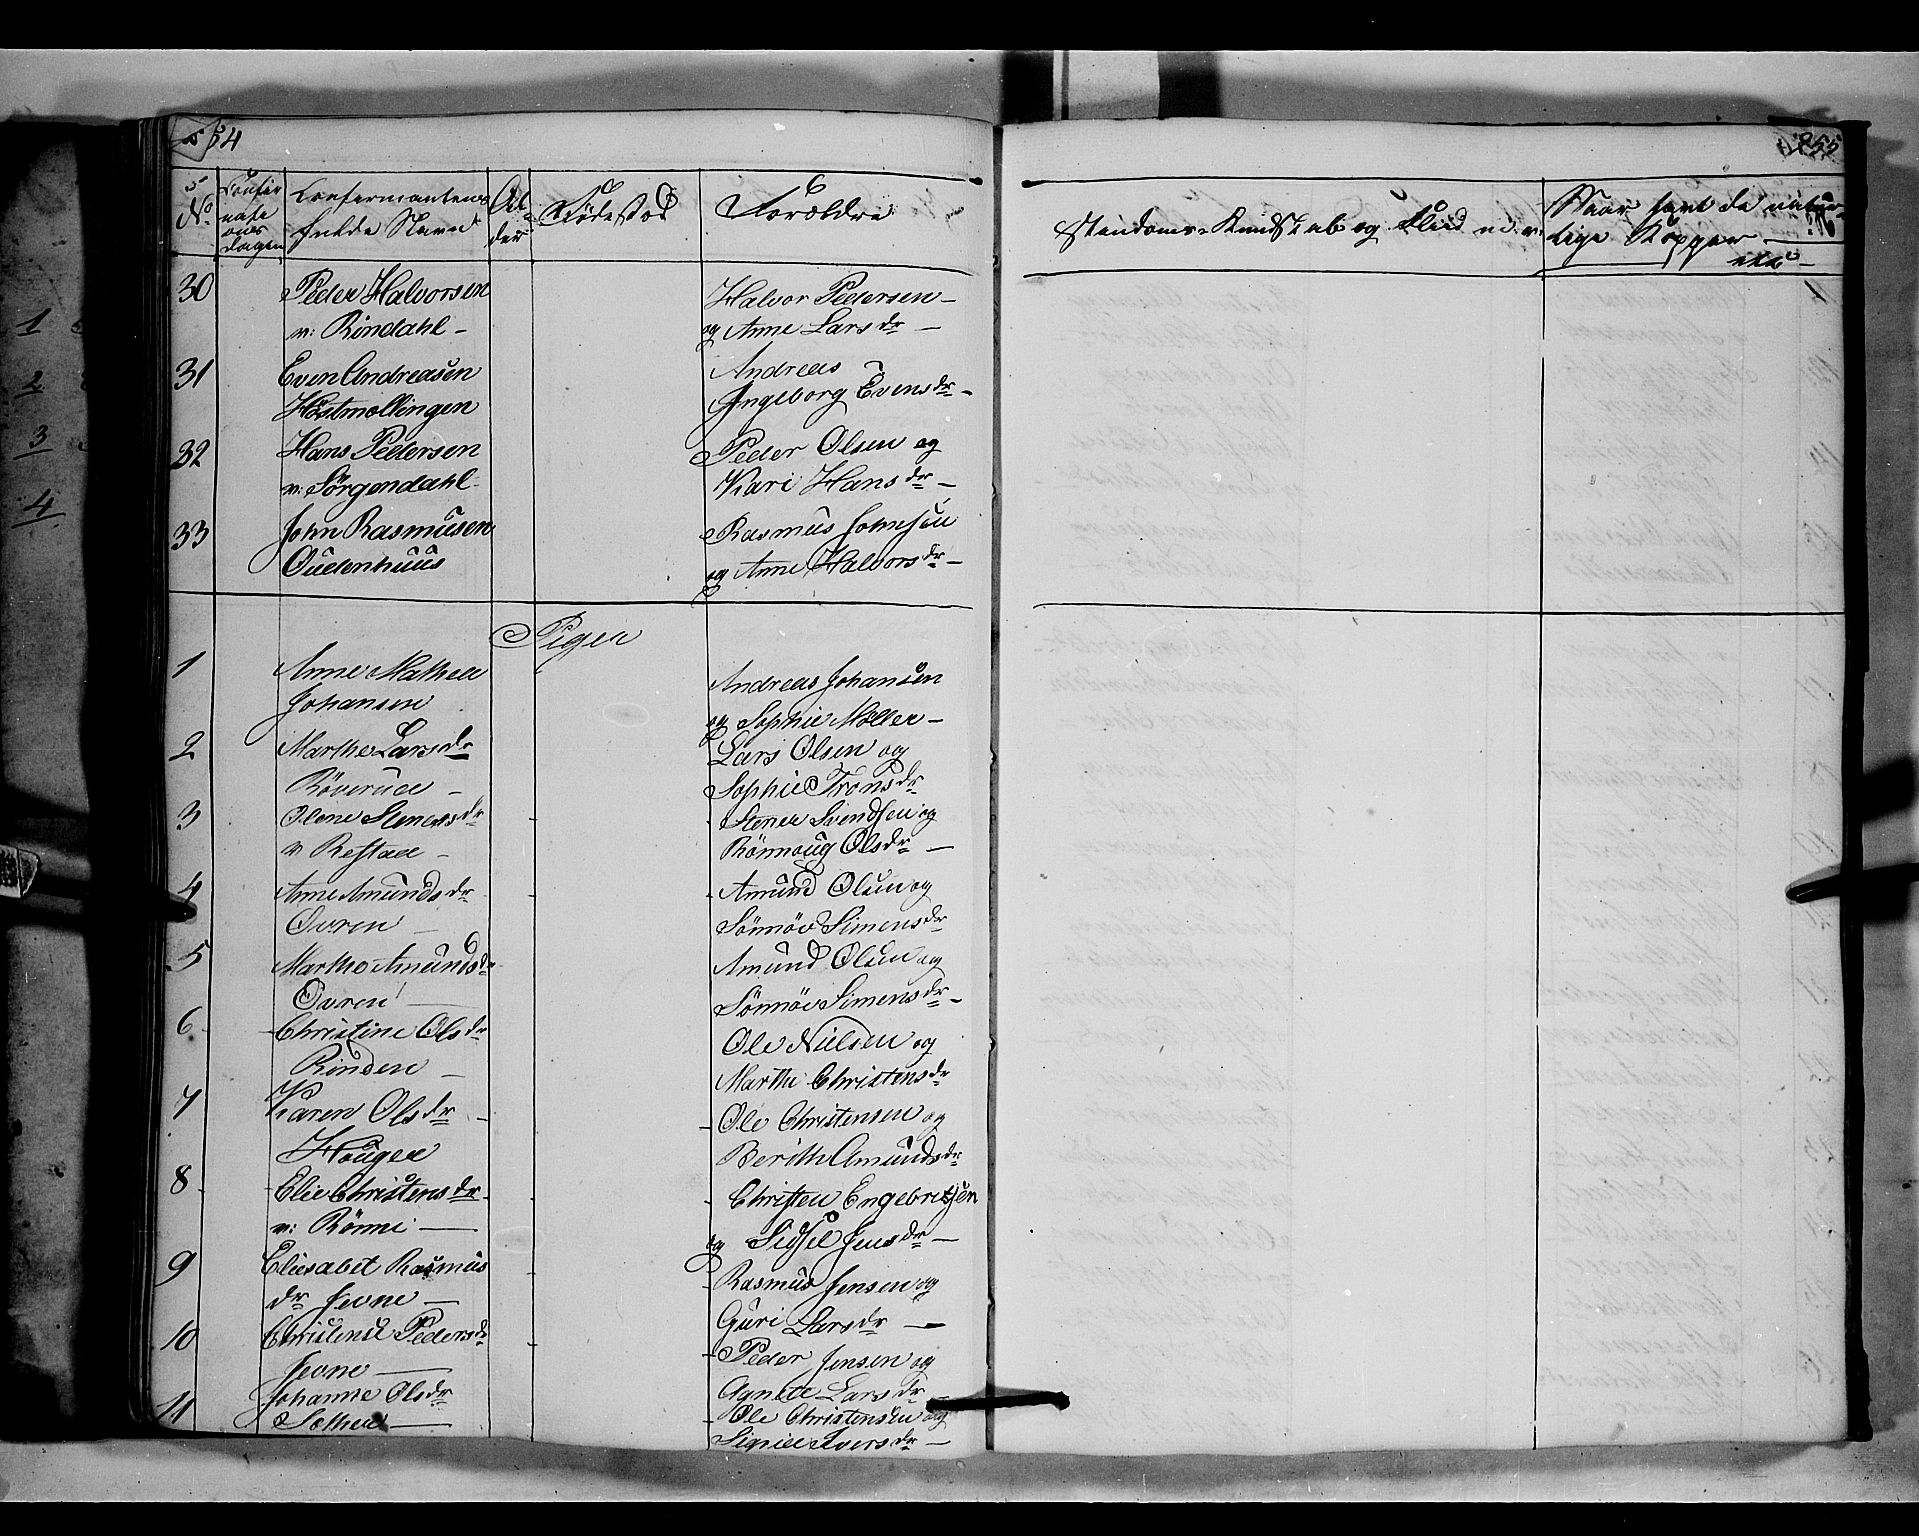 254
255
No
Confirmationsdagen
Confermantens fulde Navn
Alder
Fødestæd
Forældre
Kundskab og Fliid
Naar havt de naturlige Kopper
30
Peder Halvorsen
v: Rindahl -
Halvor Pedersen -
og Anne Larsdr -
31
Even Andreasen
Høstmællingen
Andreas
Ingeborg Evensdr -
32
Hans Pedersen
v: Sørgendahl -
Peder Olsen og
Kari Hansdr -
33
John Rasmusen
Oudenhuus
Rasmus Johnsen
og Anne Halvorsdr -
Piger
1
Anne Mathea
Johansen
Andreas Johansen
og Sophie Møller -
2
Marthe Larsdr
Röverud -
Lars Olsen og
Sophie Tronsdr
3
Olene Stenersdr
v Refstad -
Stener Svendsen og
Rönnoug Olsdr -
4
Anne Amundsdr
Ovren -
Amund Olsen og
Sönnöv Simensdr
5
Marthe Amundsdr
Ovren -
Amund Olsen og
Sönnöv Simensdr -
6
Christine Olsdr
Rinden -
Ole Nielsen og
Marthe Christensdr
7
Karen Olsdr -
Houger
Ole Christensen og
Berith Amundsdr
8
Elie Christensdr
v: Rönne -
Christen Engebretsen
og Sidsel Jensdr -
9
Eliesabet Rasmus
dr Jevne -
Rasmus Jensen og
Guri Larsdr -
10
Christense Pedersdr
Jevne -
Peder Jensen og
Agnete Larsdr -
11
Johanne Olsdr
Sæther -
Ole Christensen og
Signe Iversdr -
1
2
3
4